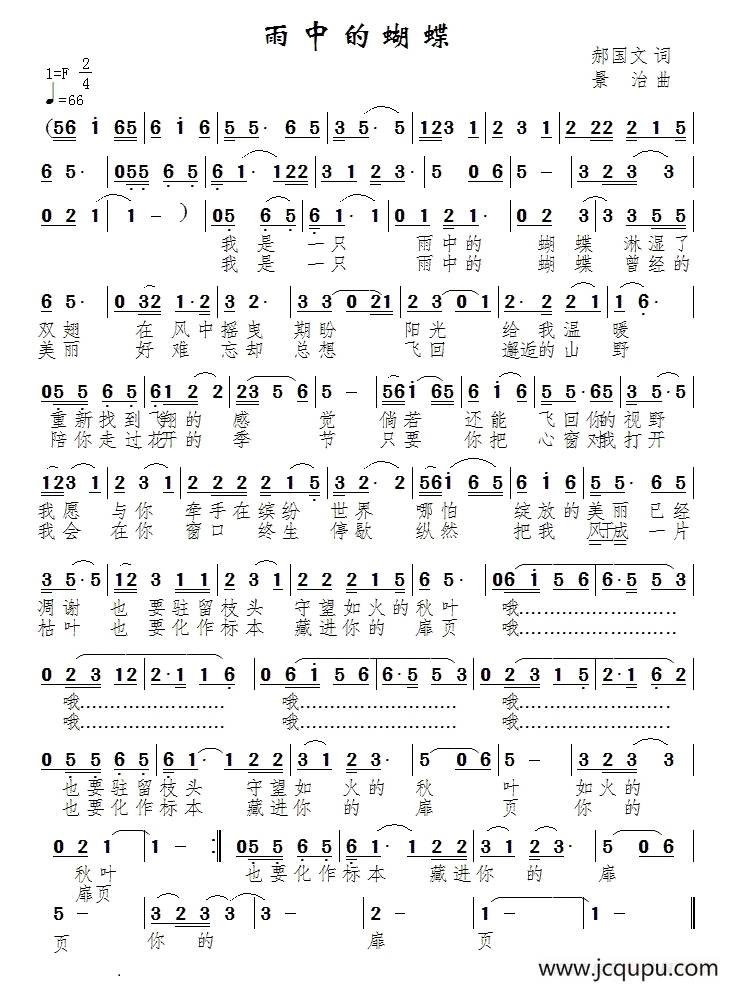 雨中的蝴蝶
郝国文 词
1=F 2/4
景 治 曲
♩=66
(56 1 65 | 6 1 6 | 5 5 6· | 5 6 5· | 3 5· 5 | 123 1 | 2 3 1 | 2 22 2 1 5
6 5· | 055 6 5 | 6 1· 122 | 3 1 2 3· | 5 0 6 | 5 – | 3 2 3 3
0 2 1 | 1 – ) | 05 6 5 | 6 1· 1· | 0 1 2 1· | 0 2 2 | 3 3 5 5
我 是 一只 雨中的 蝴 蝶 淋湿了
我 是 一只 雨中的 蝴 蝶 曾经的
6 5· | 0 32 1·2 | 3 3 5 | 3 1 0 21 | 2 3 0 1 | 2· 2 2 1 | 1 6·
双翅 在 风中摇曳 期盼 阳光 给我温 暖
美丽 好 难 忘却 总想 飞回 邂逅的山 野
05 5 6 5 | 61 2 2 | 2 3 5 6 | 5 – | 561 65 | 6 1 6 | 05 5·6 | 5 6 5·
重新找到飞翔的 感 觉 倘若 还能 飞回你的视野
陪你走过花开的 季 节 只要 你把 心窗对我打开
123 1 | 2 3 1 | 2 22 2 1 5 | 3 2· 2 | 061 65 | 6 1 6 | 5 5· 65 | 6 5
我愿 与你 牵手在缤纷 世界 哪怕 绽放的美丽已经
我会 在你 窗口 终生 停歇 纵然 把我 风干成 一片
3 5·5 | 12 3 1 1 | 2 2 3 5 | 2 2 2 1 5 | 6 1· | 06 1 5 6 | 6·5 5 3
凋谢 也 要驻留枝头 守望如火的秋叶 哦....................
枯叶 也 要化作标本 藏进你的 扉页 哦....................
0 2 3 12 | 2·1 1 6 | 0 6 1 5 6 | 6·5 5 3 | 0 2 3 1 5 | 2·1 6 2
哦.................... 哦.................... 哦....................
哦.................... 哦.................... 哦....................
0 5 5 6 5 | 6 1· 1 2 2 | 3 1 2 3· | 5 0 6 | 5 – | 3 2 3 3
也要驻留枝头 守望如 火的 秋 叶 如火的
也要化作标本 藏进你 的 扉 页 你 的
0 2 1 | 1 – :‖ 05 5 6 5 | 6 1 1 22 | 3 1 2 3· | 5 0 6
秋叶 也要化作标本 藏进你 的 扉
扉页
5 – | 3 2 3 3 | 3 0 0 | 2 – | 2 – | 1 – | 1 – ‖
页 你 的 扉 页
www.jcqupu.com